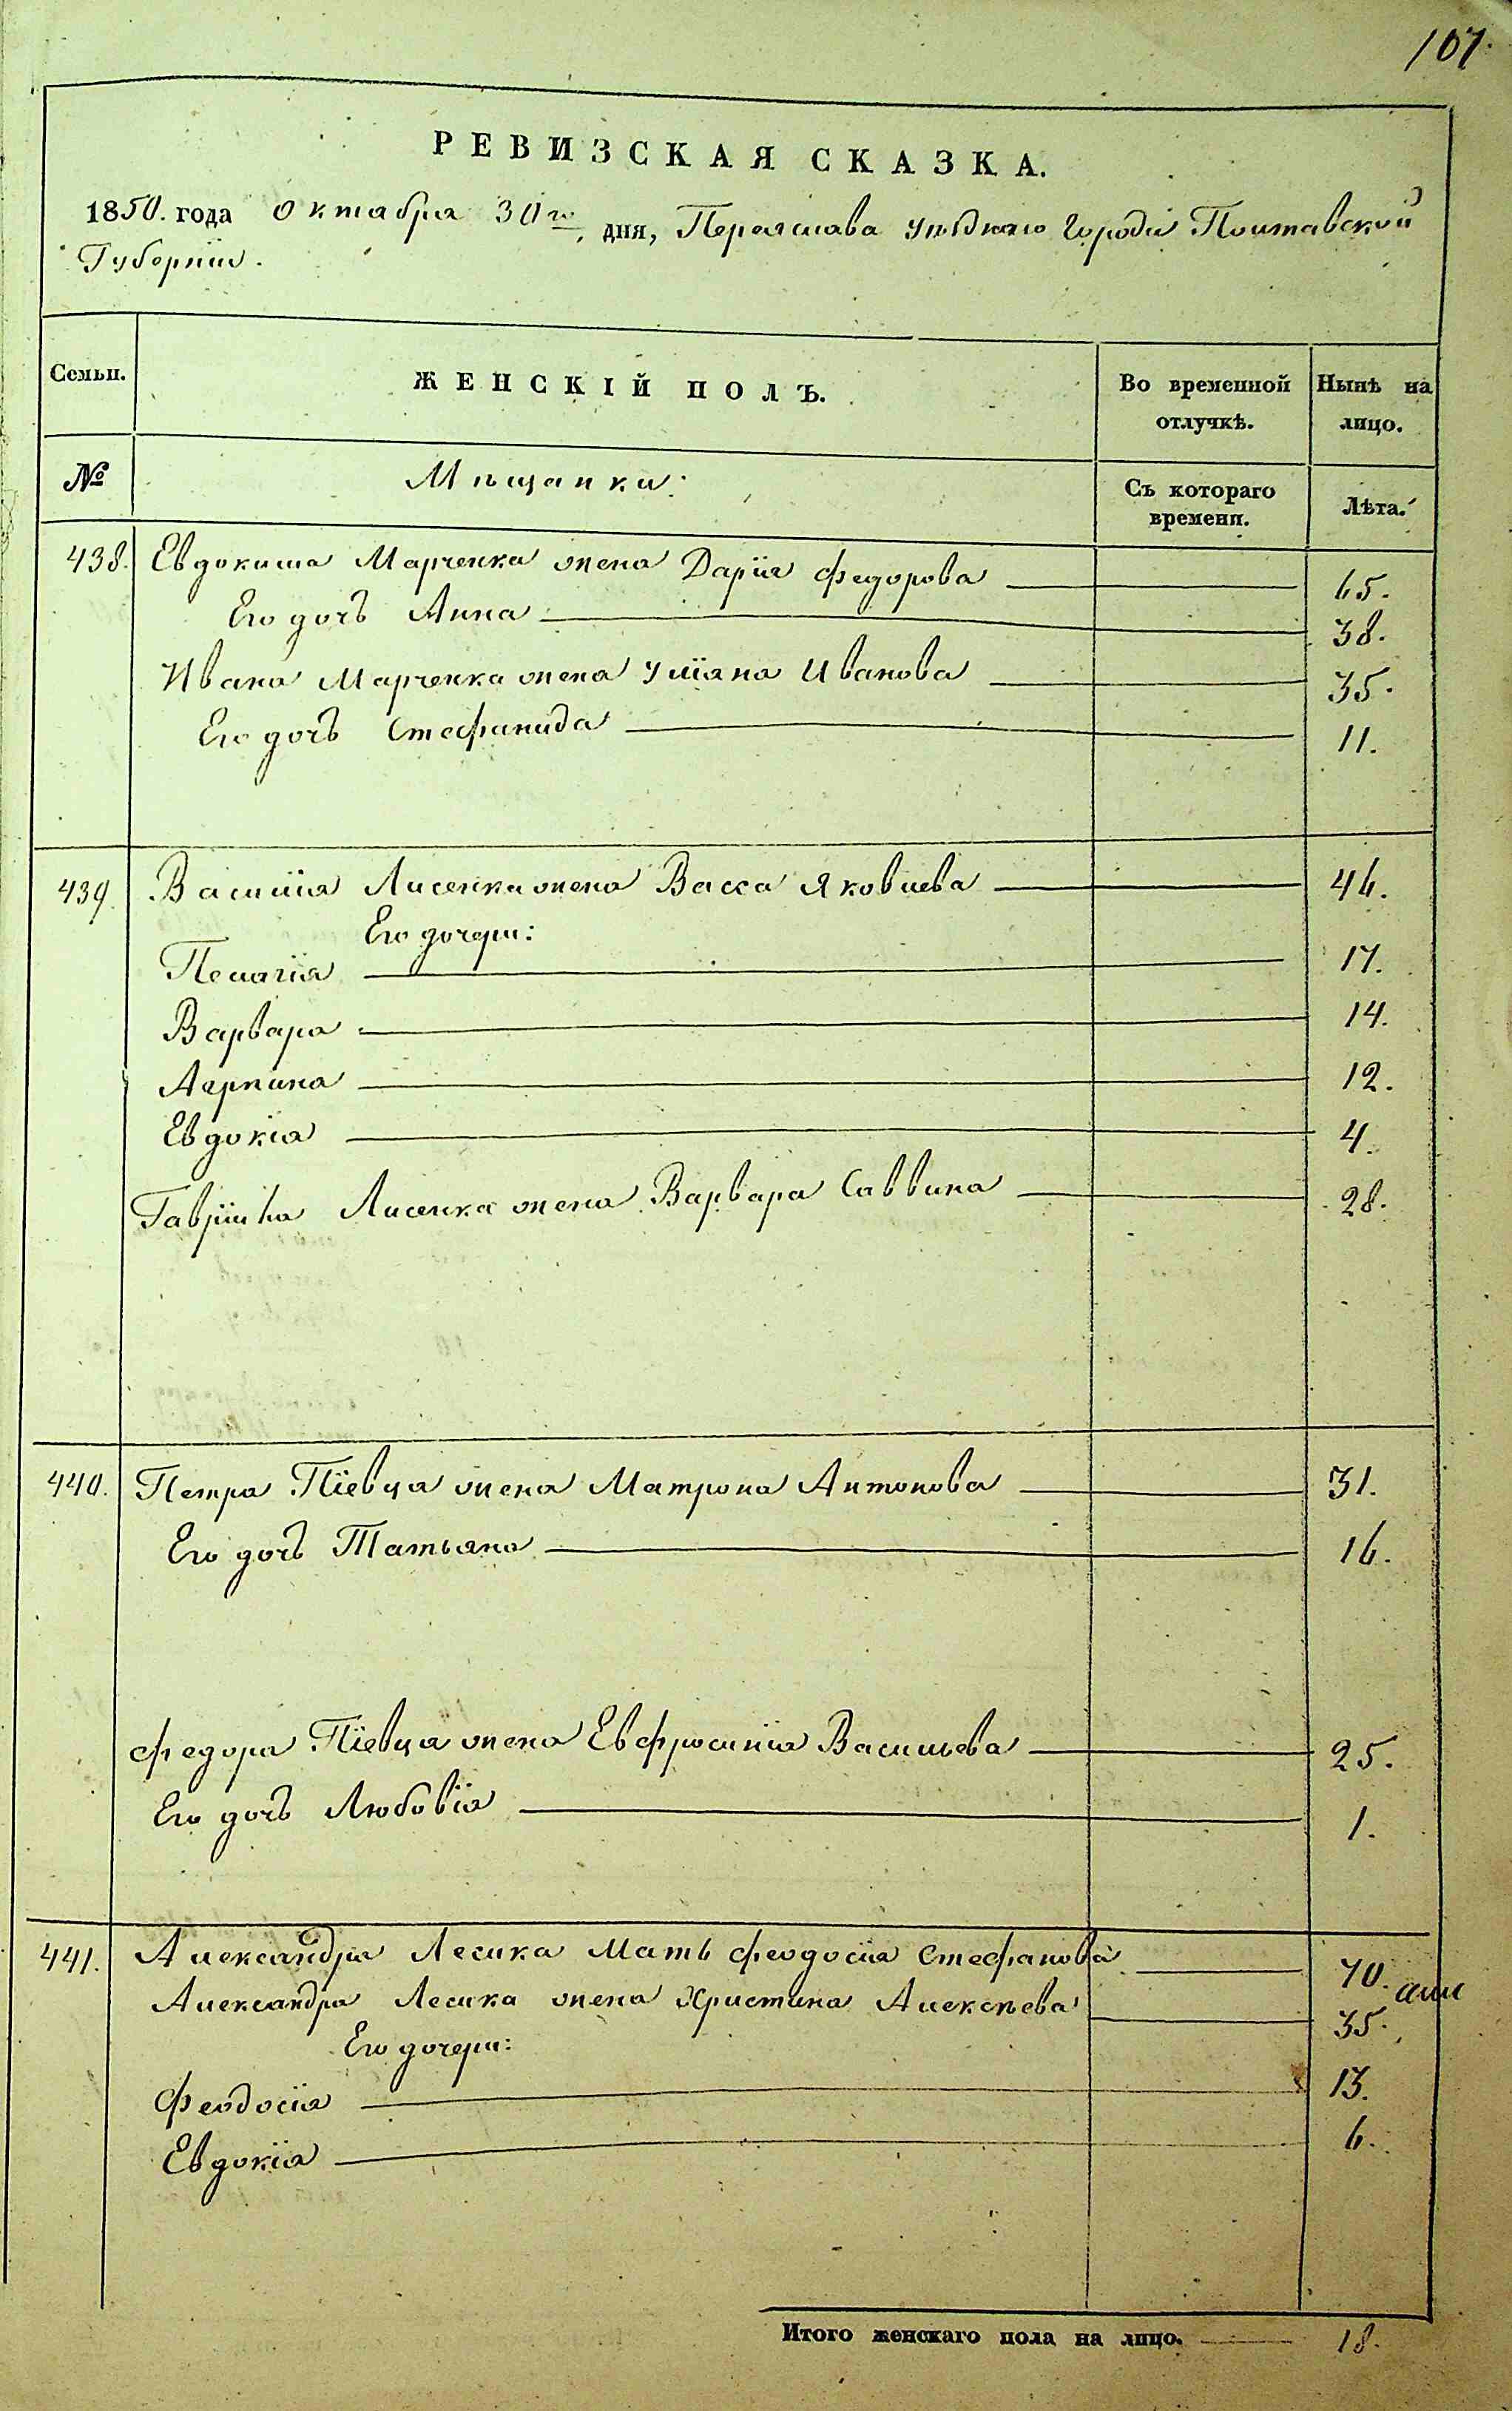 107.
РЕВИЗСКАЯ СКАЗКА.
1850. года Октября 30го дня, Переяслава уѣзднаго города Полтавской
Губерніи.
Семьи. ЖЕНСКІЙ ПОЛЪ. Во временной отлучкѣ. Нынѣ на лицо.
№ Мѣщанки: Съ котораго времени. Лѣта.
438. Евдокима Марченка жена Дарія Федорова 65.
Его дочь Анна 38.
Ивана Марченка жена Уліяна Иванова 35.
Его дочь Стефанида 11.
439. Василія Лисенка жена Васса Яковлева 46.
Его дочери:
Пелагія 17.
Варвара 14.
Агрпина 12.
Евдокія 4.
Гавріила Лисенка жена Варвара Саввина 28.
440. Петра Пѣевца жена Матрона Антонова 31.
Его дочь Татьяна 16.
Федора Пѣевца жена Евфросинія Васильева 25.
Его дочь Любовія 1.
441. Александра Лесика Мать Феодосія Стефанова 70.
Александра Лесика жена Христина Алексѣева 35.
Его дочери:
Феодосія 13.
Евдокія 6.
Итого женскаго пола на лицо. 18.